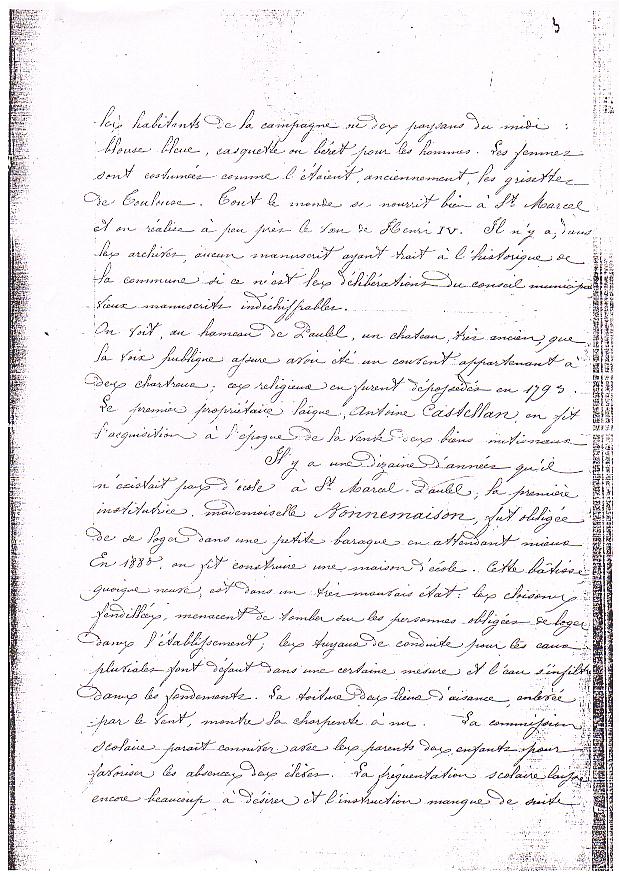 3
les habitants de la campagne ou des paysans du midi :
blouse bleue, casquette ou béret pour les hommes. Les femmes
sont costumées comme l'étaient, anciennement, les grisettes
de Toulouse. Tout le monde se nourrit bien à St. Marcel
et on réalise à peu près le vœu de Henri IV. Il n'y a, dans
les archives, aucun manuscrit ayant trait à l'historique de
la commune si ce n'est les délibérations du conseil municipal
vieux manuscrits indéchiffrables.
On voit, au hameau de Paulel, un chateau, très ancien que
la voix publique assure avoir été un couvent appartenant à
des chartreux ; ces religieux en furent dépossédés en 1793.
Le premier propriétaire laïque, Antoine Castellan en fit
l'acquisition à l'époque de la vente des biens nationaux
Il y a une dizaine d'années qu'il
n'existait pas d'école à St. Marcel-Paulel ; la première
institutrice, mademoiselle Nonnemaison, fut obligée
de se loger dans une petite baraque en attendant mieux
En 1880, on fit construire une maison d'école. Cette bâtisse,
quoique neuve, est dans un très mauvais état : les cloisons
fendillées, menacent de tomber sur les personnes obligées de loger
dans l'établissement ; les tuyaux de conduite pour les eaux
pluviales font défaut dans une certaine mesure et l'eau s'infiltre
dans les fondements. La toiture des lieux d'aisance, enlevée
par le vent, montre sa charpente à nu. La commission
scolaire paraît conniver avec les parents des enfants pour
favoriser les absences des élèves. La fréquentation scolaire laisse
encore beaucoup à désirer et l'instruction manque de suite